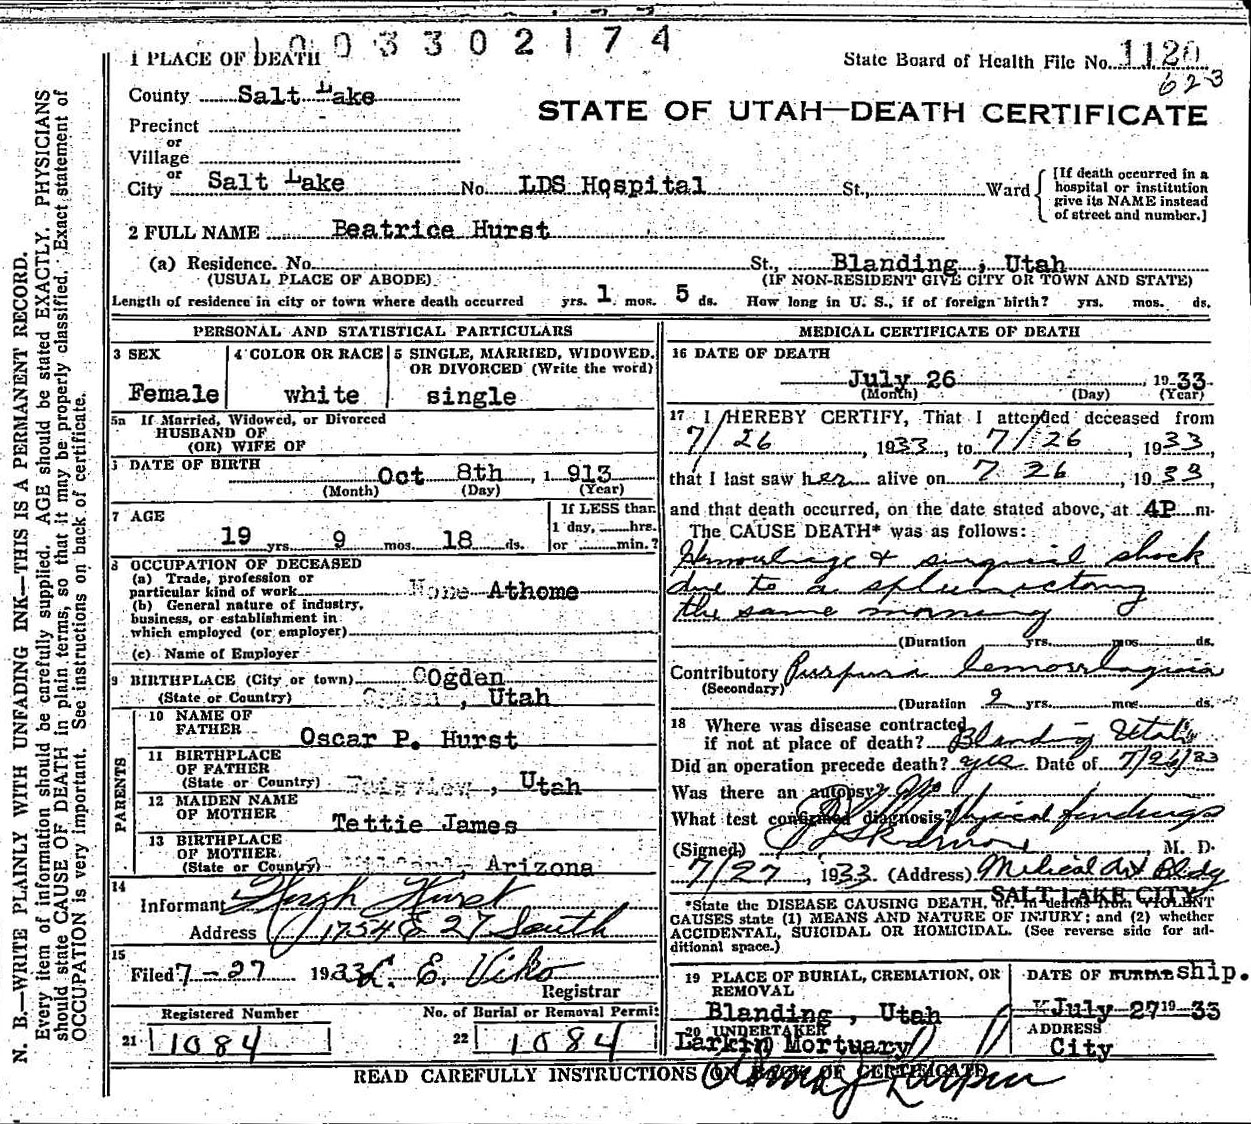 1003302174
1 PLACE OF DEATH
State Board of Health File No. 1120
623
County Salt Lake
STATE OF UTAH—DEATH CERTIFICATE
Precinct
or
Village
or
City Salt Lake No. LDS Hospital St., Ward
[If death occurred in a
hospital or institution
give its NAME instead
of street and number.]
2 FULL NAME Beatrice Hurst
(a) Residence. No. St., Blanding , Utah
(USUAL PLACE OF ABODE) (IF NON-RESIDENT GIVE CITY OR TOWN AND STATE)
Length of residence in city or town where death occurred yrs. 1 mos. 5 ds. How long in U. S., if of foreign birth? yrs. mos. ds.
PERSONAL AND STATISTICAL PARTICULARS
3 SEX
Female
4 COLOR OR RACE
white
5 SINGLE, MARRIED, WIDOWED,
OR DIVORCED (Write the word)
single
5a If Married, Widowed, or Divorced
HUSBAND OF
(OR) WIFE OF
DATE OF BIRTH
Oct 8th, 1913
(Month) (Day) (Year)
7 AGE
19 yrs. 9 mos. 18 ds.
If LESS than
1 day, hrs.
or min.?
8 OCCUPATION OF DECEASED
(a) Trade, profession or
particular kind of work None Athome
(b) General nature of industry,
business, or establishment in
which employed (or employer)
(c) Name of Employer
9 BIRTHPLACE (City or town) Ogden
(State or Country) Ogden , Utah
PARENTS
10 NAME OF
FATHER
Oscar P. Hurst
11 BIRTHPLACE
OF FATHER
(State or Country) Fairview , Utah
12 MAIDEN NAME
OF MOTHER
Tettie James
13 BIRTHPLACE
OF MOTHER
(State or Country) , Arizona
14
Informant Hugh Hurst
Address 1754 E 27 South
15
Filed 7-27 1933 L. E. Viko
Registrar
Registered Number
21 1084
No. of Burial or Removal Permit
22 1084
MEDICAL CERTIFICATE OF DEATH
16 DATE OF DEATH
July 26, 1933
(Month) (Day) (Year)
17 I HEREBY CERTIFY, That I attended deceased from
7/26, 1933, to 7/26 1933
that I last saw her alive on 7 26, 1933,
and that death occurred, on the date stated above, at 4P m.
The CAUSE DEATH* was as follows:
Hemorrhage & surgical shock
due to a splenectomy
the same morning
(Duration yrs. mos. ds.
Contributory Purpura hemorrhagica
(Secondary)
(Duration 2 yrs. mos. ds.
18 Where was disease contracted
if not at place of death? Blanding Utah
Did an operation precede death? yes Date of 7/26/33
Was there an autopsy? No
What test confirmed diagnosis? Physical findings
(Signed) Skidmore, M. D.
7/27, 1933 (Address) Medical Art Bldg
SALT LAKE CITY
*State the DISEASE CAUSING DEATH, or in deaths from VIOLENT
CAUSES state (1) MEANS AND NATURE OF INJURY; and (2) whether
ACCIDENTAL, SUICIDAL OR HOMICIDAL. (See reverse side for ad-
ditional space.)
19 PLACE OF BURIAL, CREMATION, OR
REMOVAL
Blanding , Utah
DATE OF BURIAL ship.
July 27 19 33
20 UNDERTAKER
Larkin Mortuary
ADDRESS
City
READ CAREFULLY INSTRUCTIONS ON BACK OF CERTIFICATE
N. B.—WRITE PLAINLY WITH UNFADING INK—THIS IS A PERMANENT RECORD.
Every item of information should be carefully supplied. AGE should be stated EXACTLY. PHYSICIANS
should state CAUSE OF DEATH in plain terms, so that it may be properly classified. Exact statement of
OCCUPATION is very important. See instructions on back of certificate.